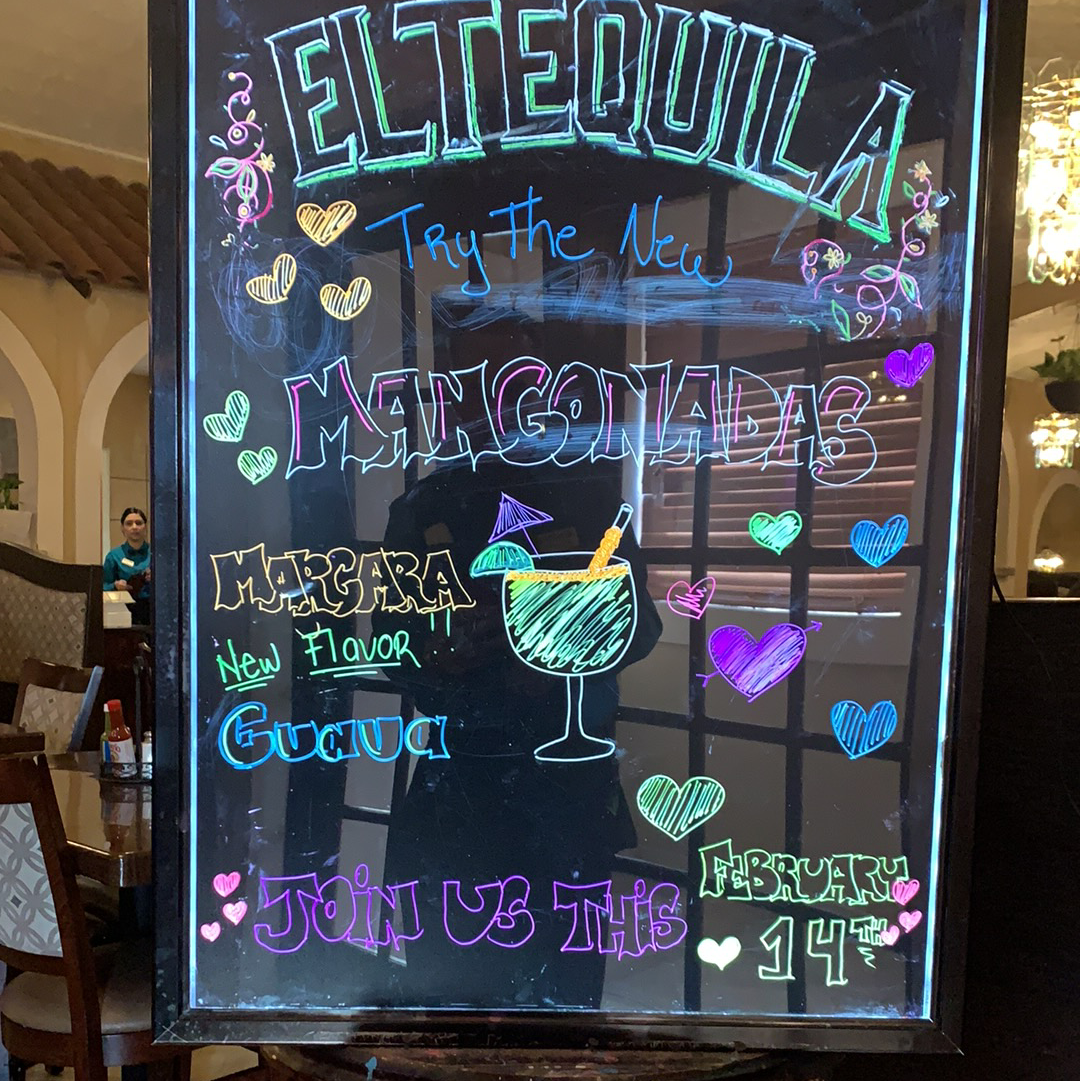 EL TEQUILA
Try The New
MANGONADAS
MARGARA
New Flavor "
Guava
JOIN US THIS
FEBRUARY
14TH